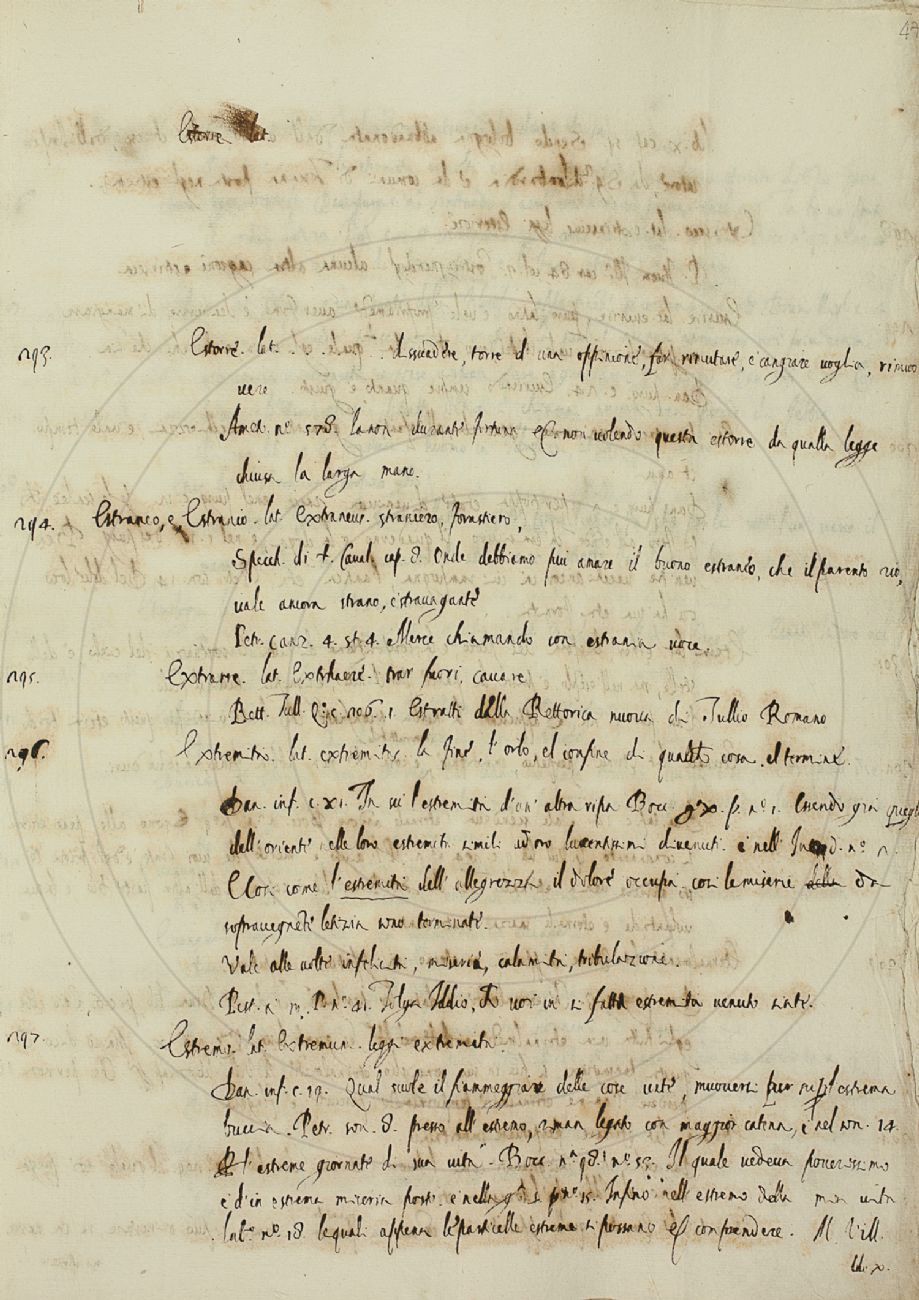 47
Estorre lat.
293. Estorre. lat. . . . . . dissuadere, torre d'una oppinione, far rimutare, e cangiare voglia, rimuo
vere
Amet. n.º 578. la non durante fortuna & non volendo questa estorre da quella legge
chiusa la larga mano.
294. Estraneo, e Estranio. lat. Extraneus. straniero, forastiero,
Specch. di +. Caval. cap. 8. Onde debbiamo piu amare il buono estranio, che il parente rio,
vale ancora strano, estravagante
Petr. canz. 4. st. 4. Merce chiamando con estrania voce.
295. Extrarre. lat. Extrhaere. trar fuori, cavare
Rett. Tull. 106. 1. Estratti della Rettorica nuova di Tullio Romano
296. Extremita. lat. extremitas. la fine, l'orlo, el confine di qualche cosa, el termine.
Dan. inf. c. XI. In su l'estremita d'un' altra ripa Bocc. g. x. p. n.º 1. Essendo gia quegli
dell'oriente nelle loro estremita simili ad oro lucentissimi divenuti. e nell' Introd. n.º 2.
Cosi come l'estremita dell' allegrezza il dolore occupa, cosi le miserie della da
sopravegnente letizia sono terminate.
Vale alle volte infelicita, miseria, calamita, tribulazione.
n.º 41. Tolga Iddio, che voi in si fatta estremita venuto siate.
297. Estremo. lat. Extremum. leggi extremita.
Dan. inf. c. 19. Qual suole il fiammeggiare delle cose unte, muoversi pur su per l'estrema
buccia. Petr. son. 8. presso all' estremo, a man legato con maggior catena, e nel son. 14.
l'estreme giornate di sua vita. Bocc. n.ª 98. n.º 53. Il quale vedeva poverissimo
e d'in estrema miseria posto e nella n.º 15. Infino nell' estremo della mia vita
Lab.º n.º 18. lequali appena le particelle estreme si possano comprendere. M. Vill.
lib. x.